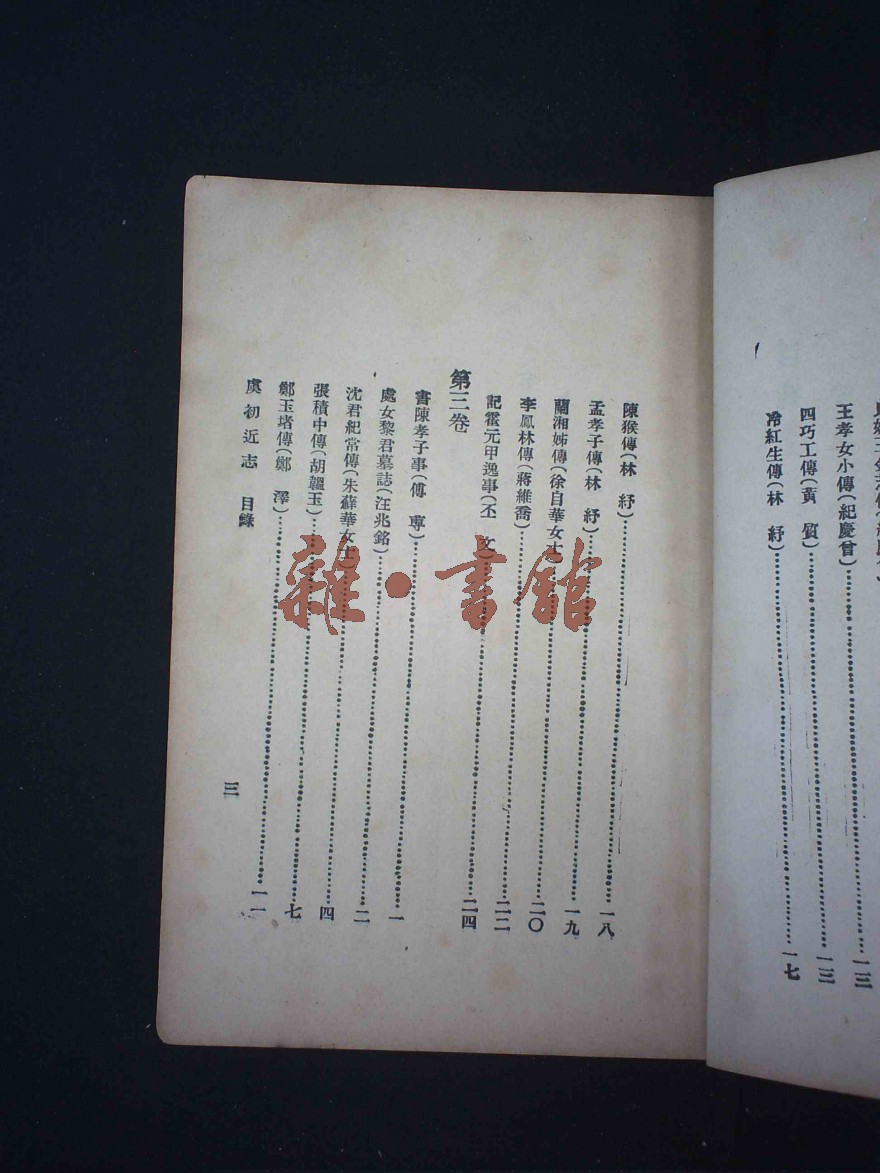 王孝女小傳(紀慶曾)……一三
四巧工傳(黃 質)……一三
冷紅生傳(林 紓)……一七
陳猴傳(林 紓)……一八
孟孝子傳(林 紓)……一九
蘭湘姊傳(徐自華女士)……二〇
李鳳林傳(蔣維喬)……二二
記霍元甲逸事(丕 文)……二四
第三卷
書陳孝子事(傅 尃)……一
處女黎君墓誌(汪兆銘)……二
沈君紀常傳(朱蘇華女士)……四
張積中傳(胡韞玉)……七
鄭玉堵傳(鄭 澤)……一一
虞初近志 目錄
三
雜·書館